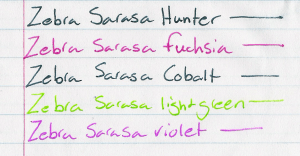 Zebra Sarasa Hunter
Zebra Sarasa fuchsia
Zebra Sarasa Cobalt
Zebra Sarasa light green
Zebra Sarasa violet